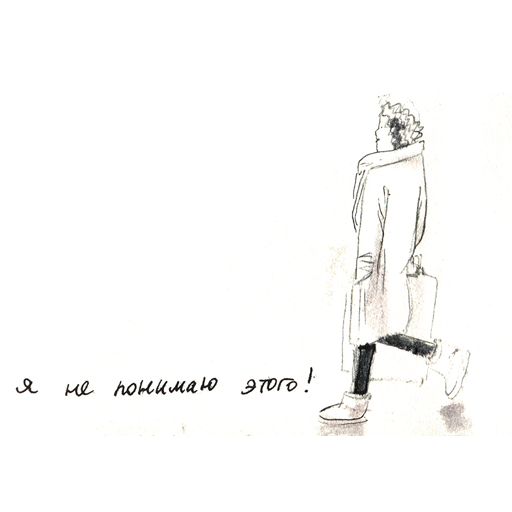 я не понимаю этого!